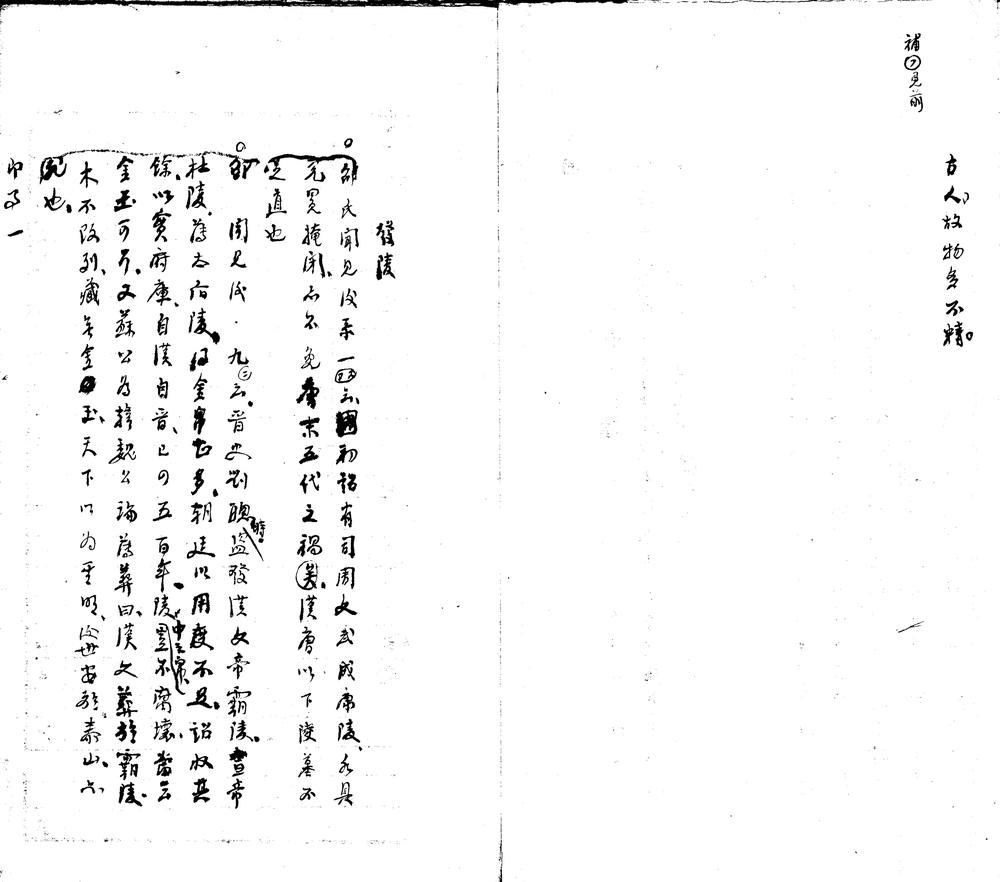 補⑦見前
古人故物多不轉。
發陵
○邵氏聞見後录一云、初詔有司周文武成康陵、各具
冕掩閉、而不免唐末五代之禍。漢唐以下陵墓不
足道也
○邵 聞見後·九㊂云、晉史劉聰時盜發漢文帝霸陵。宣帝
杜陵、薄太后陵、得金帛甚多、朝廷以用度不足、詔收其
餘、以實府庫、自漢自晉、已四五百年、陵中之帛不腐壞、當云
金玉可尔、又蘇公為韓魏公論薄葬曰、漢文葬於霸陵、
木不改列、藏無金玉、天下以為聖明、後世安於泰山、亦
也、
印子一